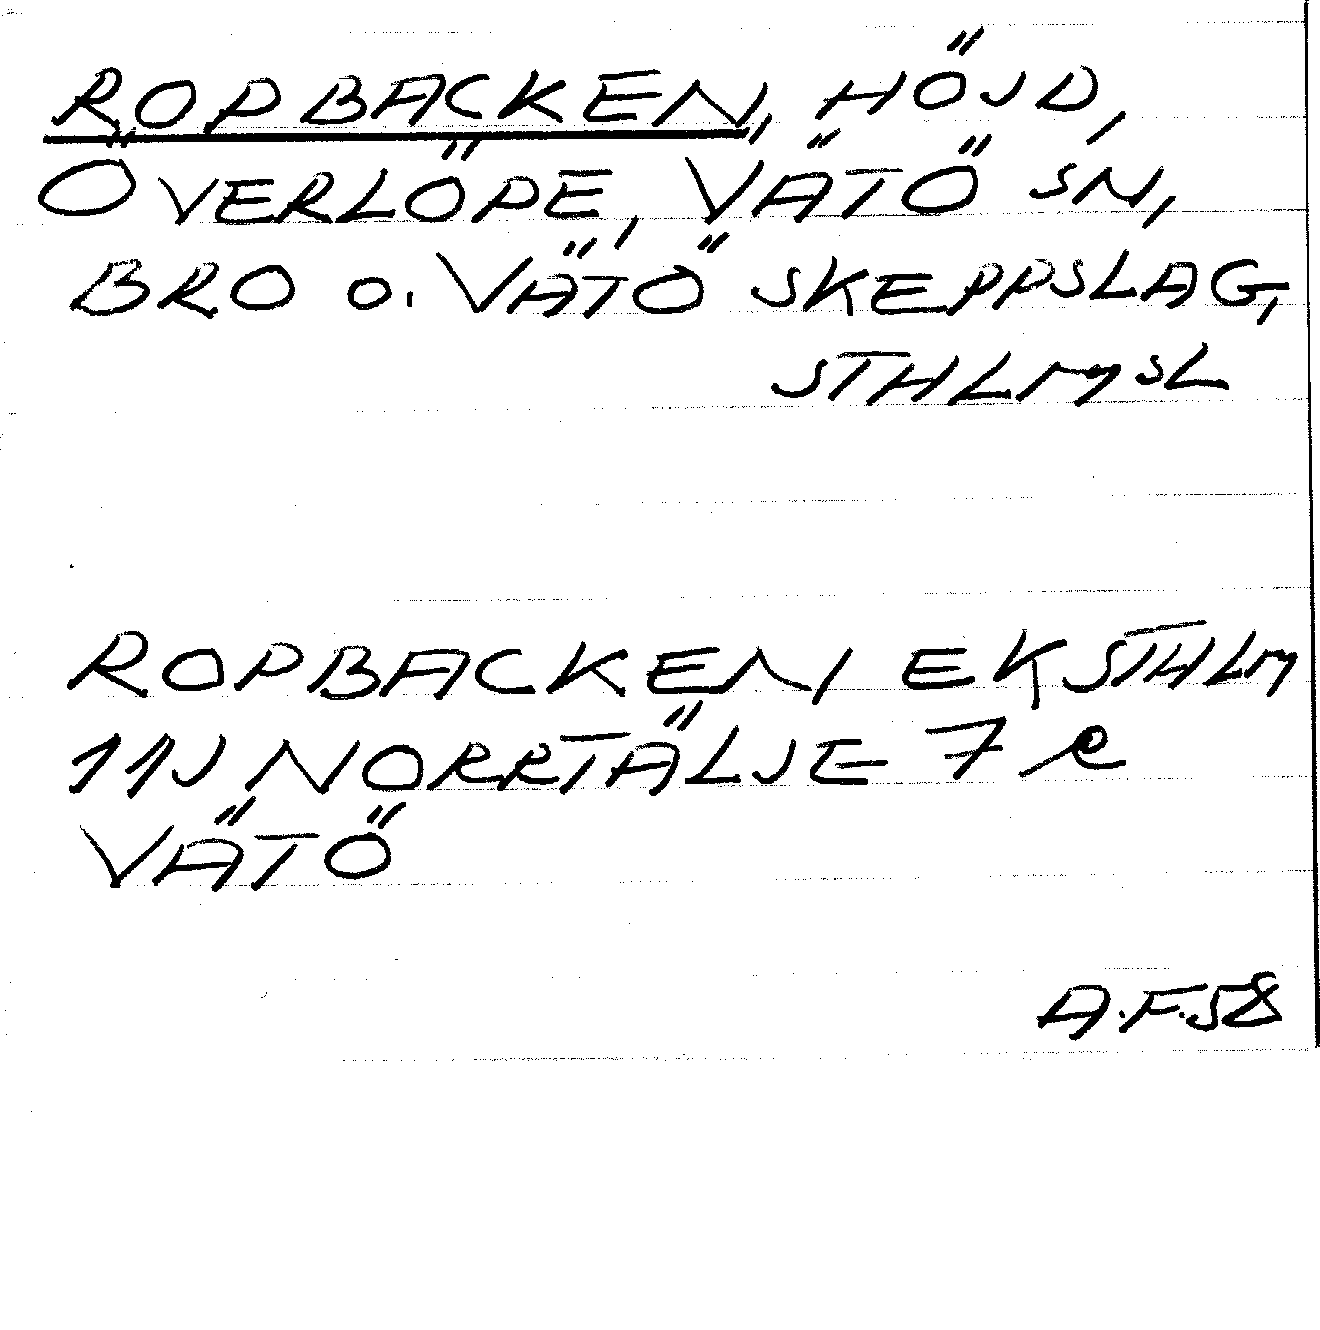 ROPBACKEN, HÖJD,
ÖVERLÖPE, VÄTÖ SN,
BRO O. VÄTÖ SKEPPSLAG,
STHLMSL
ROPBACKEN EK STHLM
11J NORRTÄLJE 7 e
VÄTÖ
A.F.58